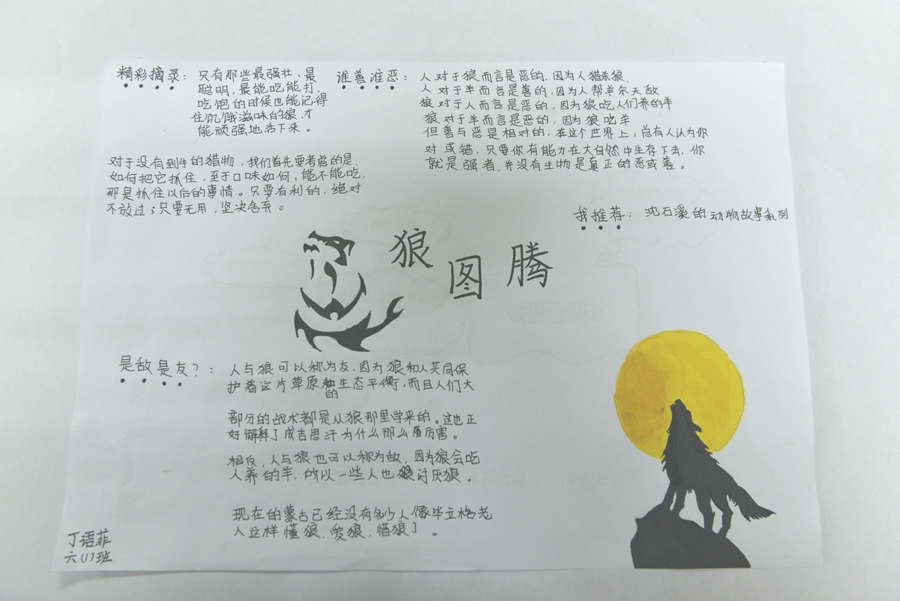 精彩摘录：只有那些最强壮、最
聪明，最能吃能打，
吃饱的时候也能记得
住饥饿滋味的狼，才
能顽强地活下来。
对于没有到手的猎物，我们首先要考虑的是
如何把它抓住，至于口味如何，能不能吃，
那是抓住以后的事情。只要有利的，绝对
不放过；只要无用，坚决舍弃。
谁善谁恶：人对于狼而言是恶的，因为人猎杀狼，
人对于羊而言是善的，因为人帮羊杀天敌
狼对于人而言是恶的，因为狼吃人们养的羊
狼对于羊而言是恶的，因为狼吃羊
但善与恶是相对的，在这个世界上，总有人认为你
对或错，只要你有能力在大自然中生存下去，你
就是强者，并没有生物是真正的恶或善。
我推荐：沈石溪的动物故事系列
狼图腾
是敌是友？：人与狼可以称为友，因为狼和人共同保
护着这片草原的生态平衡，而且人们大
部分的战术都是从狼那里学来的。这也正
好解释了成吉思汗为什么那么厉害。
相反，人与狼也可以称为敌，因为狼会吃
人养的羊，所以一些人也讨厌狼。
现在的蒙古已经没有多少人像毕立格老
人这样懂狼，爱狼，惜狼了。
丁语菲
六(1)班